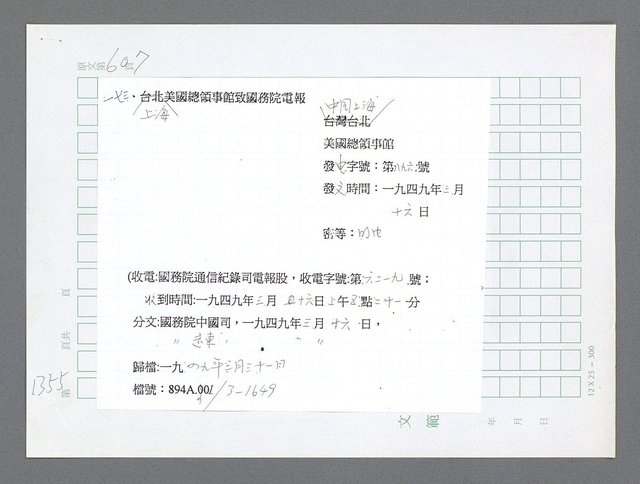 原文第607頁
一七三、台北美國總領事館致國務院電報
上海
中国上海
台灣台北
美國總領事館
發电字號：第八九六號
發文時間：一九四九年三月
十六日
密等：明电
(收電:國務院通信紀錄司電報股，收電字號:第六二一九號；
收到時間:一九四九年三月 十六日上午 點二十一分
分文:國務院中國司，一九四九年三月十六日，
〃 遠東〃 〃 〃
歸檔:一九四九年三月三十一日
檔號：894A.00/3-1649
頁
頁共
1355
第
文範
年 月 日
12 X 25 = 300